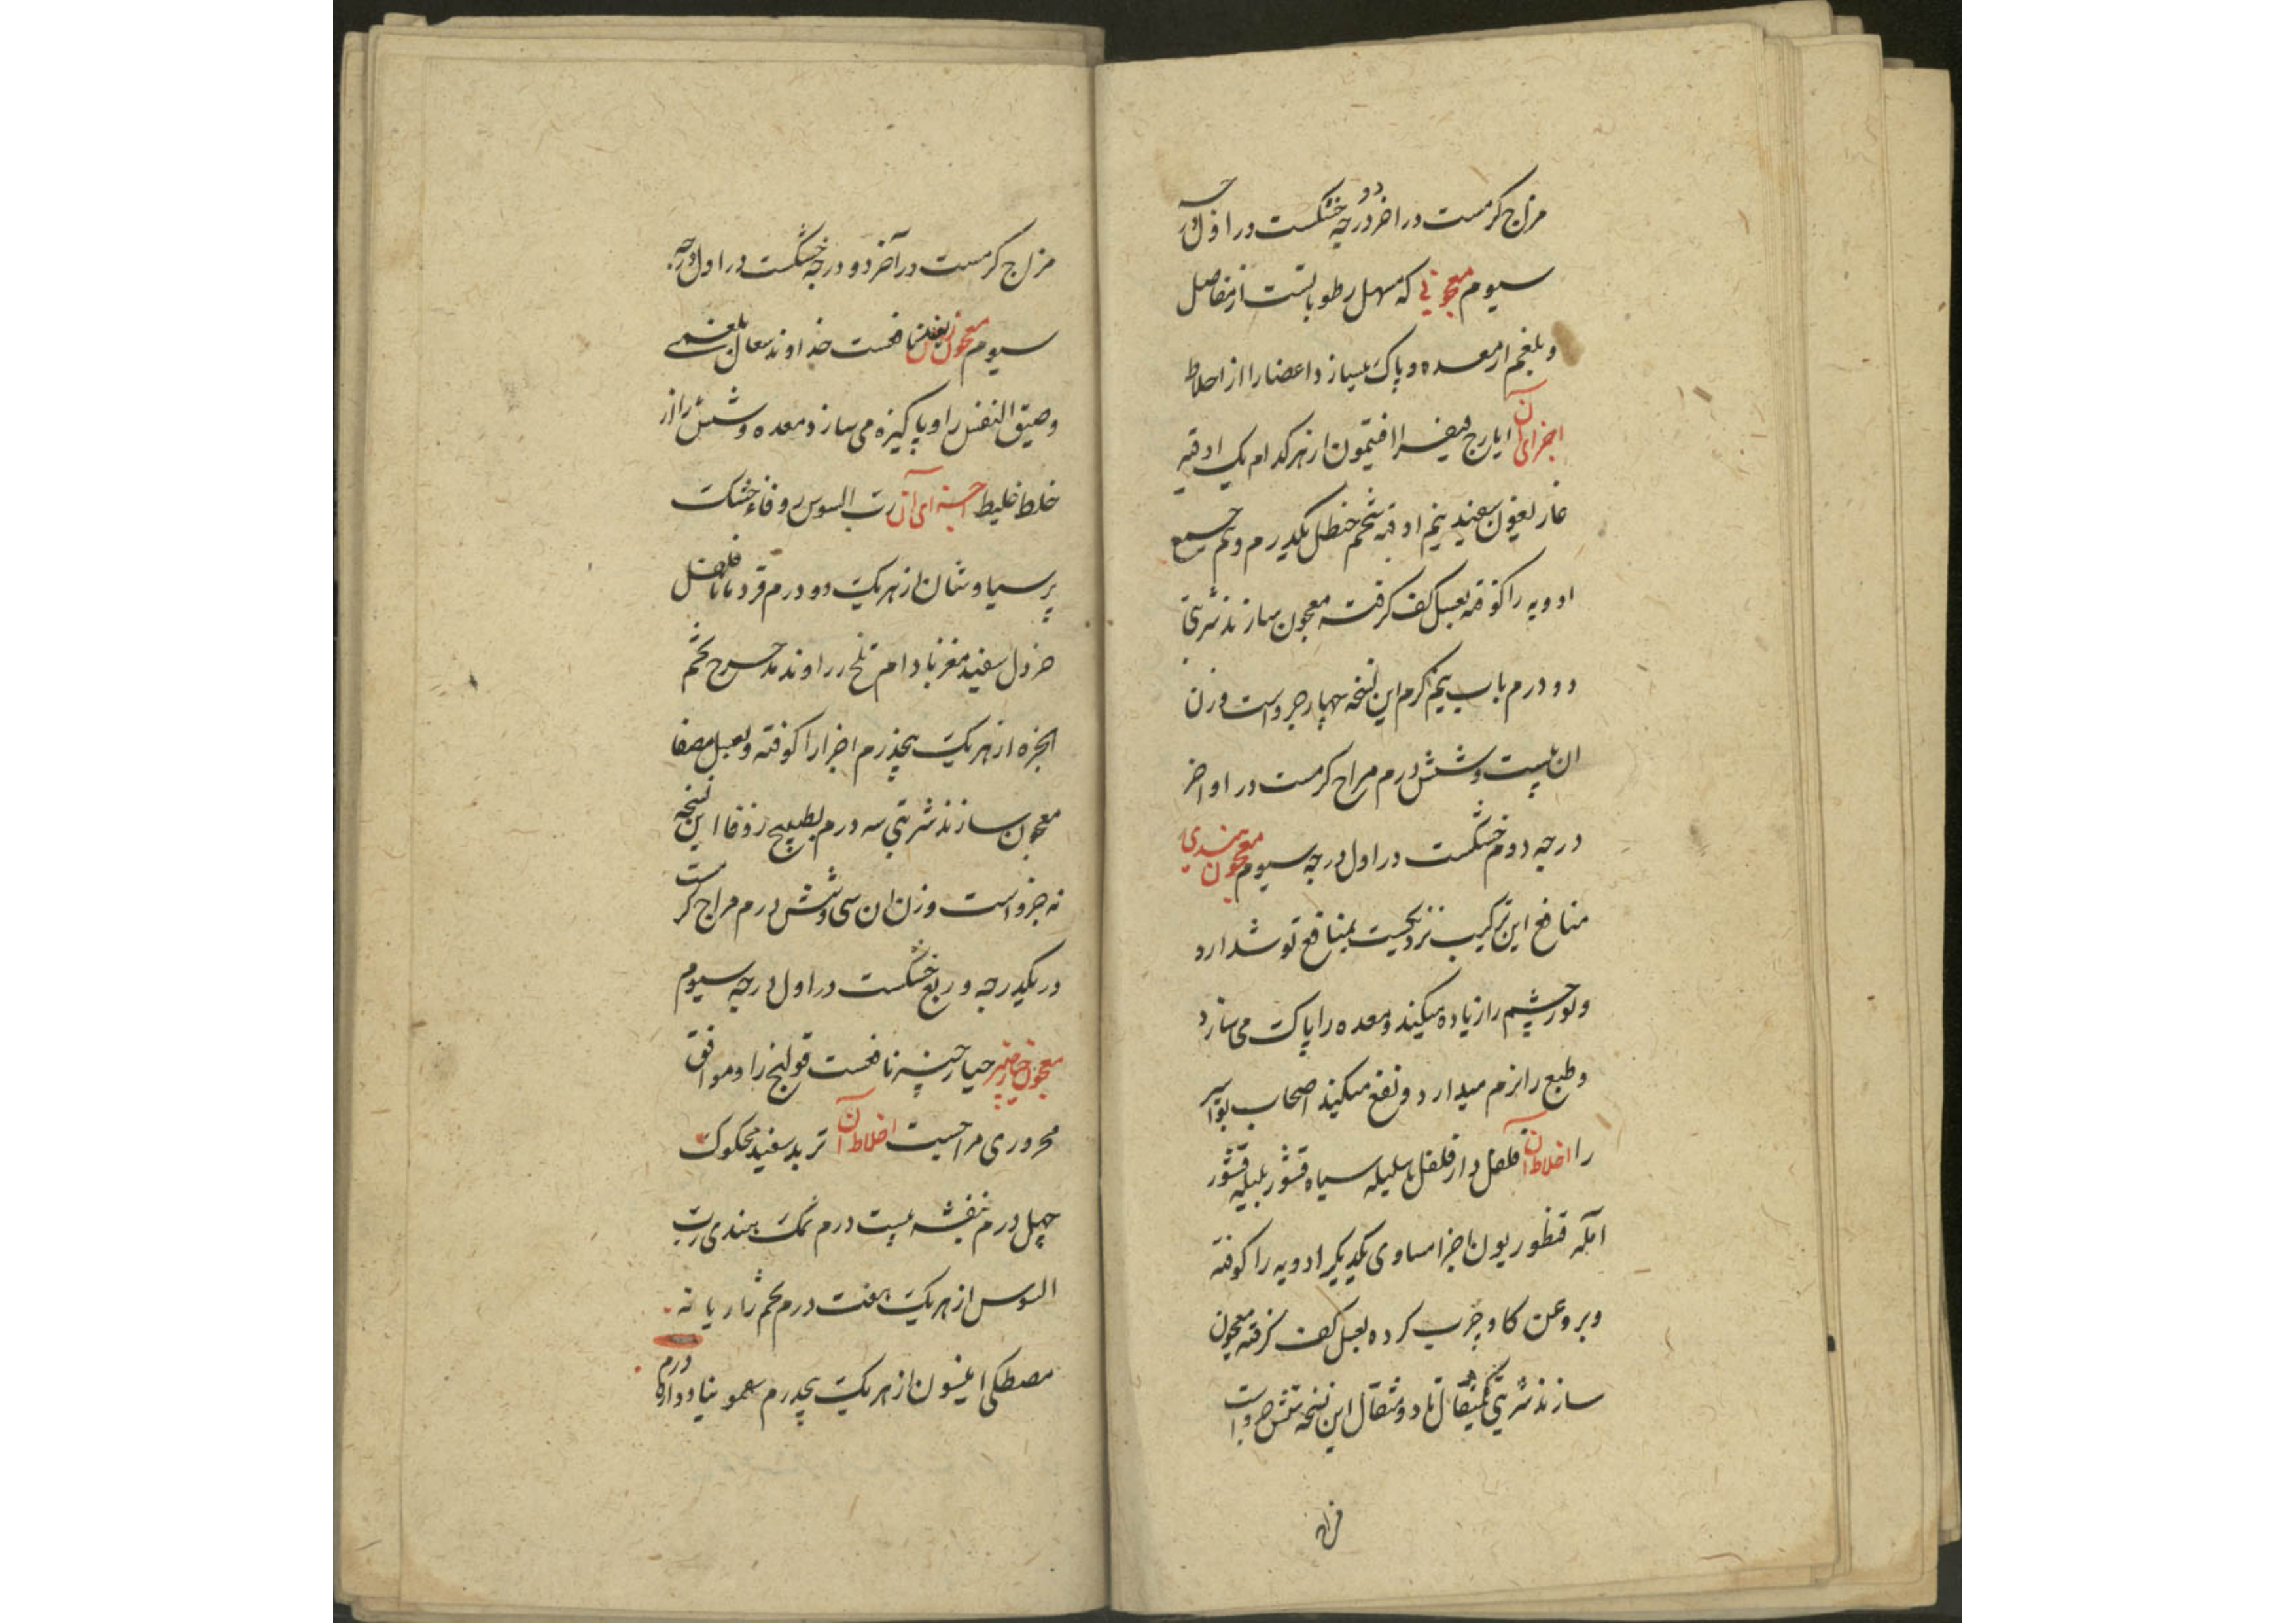 مزاج کرمست در اخر دو درجه خشکست در اول درجه
سیوم معجونی که مسهل رطوباتست از مفاصل
و بلغم از معده و پاک میسازد اعضا را از اخلاط
اجزای آن ایارج فیقرا افتیمون از هر کدام یک اوقیه
غاریقون سفید نیم اوقیه شحم حنظل یکدرم و نیم جمیع
ادویه را کوفته بعسل کف کرفته معجون سازند شربتی
دو درم باب نیم کرم این نسخه چهار جزو است وزن
ان بیست و شش درم مزاج کرمست در اواخر
درجه دوم خشکست در اول درجه سیوم معجون هندی
منافع این ترکیب نزدیکست بمنافع توشدارو
و نور چشم را زیاده میکند و معده را پاک می سازد
و طبع را نرم میدارد و نفع میکند اصحاب بواسیر
را اخلاط آن فلفل دارفلفل هلیله سیاه قشور بلیله قشور
آمله قنطوریون اجزا مساوی یکدیکر ادویه را کوفته
و بروغن کاو چرب کرده بعسل کف کرفته معجون
سازند شربتی یکمثقال تا دو مثقال این نسخه شش جزو است
مزاج
مزاج کرمست در آخر دو درجه خشکست در اول درجه
سیوم معجون نافعست خداوند سعال بلغمی
و ضیق النفس را و پاکیزه می سازد معده و شش را از
خلط غلیظ اجزای آن رب السوس زوفاء خشک
پرسیاوشان از هر یک دو درم قردمانا فلفل
خردل سفید مغز بادام تلخ زراوند مدحرج تخم
انجزه از هر یک پنجدرم اجزا را کوفته و بعسل مصفا
معجون سازند شربتی سه درم بطبیخ زوفا این نسخه
نه جزو است وزن ان سی و شش درم مزاج کرمست
در یکدرجه و ربع خشکست در اول درجه سیوم
معجون خیارچنبر خیارچنبر نافعست قولنج را و موافق
محروری مزاجست اخلاط آن تربد سفید محکوک
چهل درم بنفشه بیست درم نمک هندی رب
السوس از هر یک هفت درم تخم رازیانه
مصطکی انیسون از هر یک پنجدرم سقمونیا دوازده درم